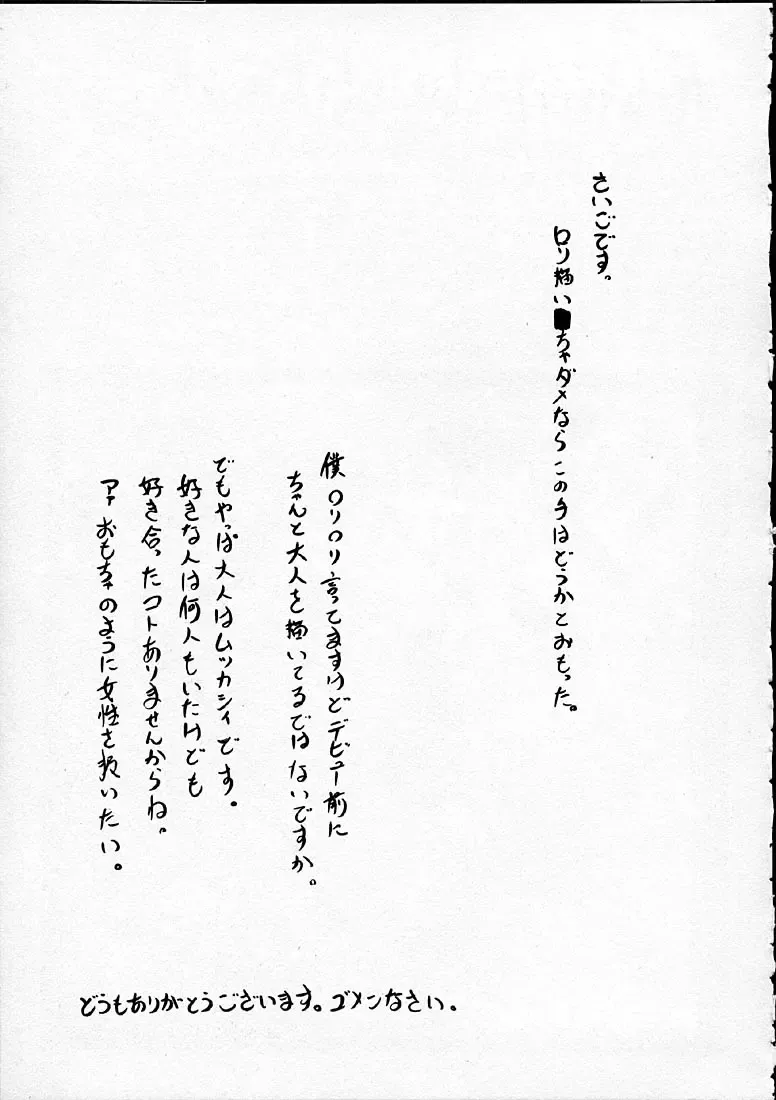 さいごです。
ロリ描い ちゃダメならこの手はどうかとおもった。
僕ロリロリ言ってますけどデビュー前に
ちゃんと大人を描いてるではないですか。
でもやっぱ大人はムッカシィです。
好きな人は何人もいたけども
好き合ったコトありませんからね。
アァおもちゃのように女性を扱いたい。
どうもありがとうございます。ゴメンなさい。